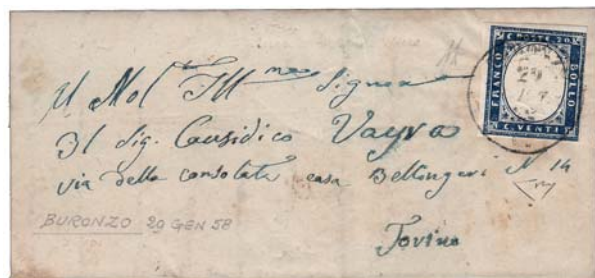 C. POSTE 20
FRANCO
BOLLO
C. VENTI
29
Al Mol. Ill.mo Signor
Il Sig. Causidico Vayra
via della consolata casa Bellongeri N 14
Torino
BURONZO 29 GEN 58